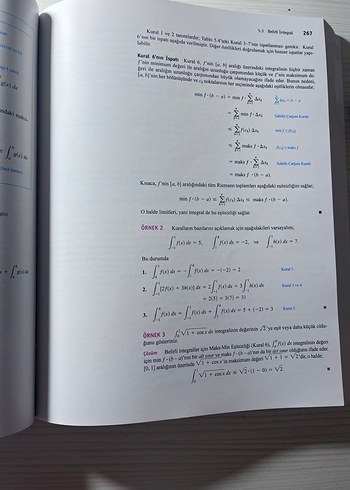 5.3 Belirli İntegral 267
Kural 1 ve 2 tanımlardır; Tablo 5.4'teki Kural 3–7'nin ispatlanması gerekir. Kural
6'nın bir ispatı aşağıda verilmiştir. Diğer özellikleri doğrulamak için benzer ispatlar yapı-
labilir.
Kural 6'nın İspatı Kural 6, f'nin [a, b] aralığı üzerindeki integralinin hiçbir zaman
f'nin minimum değeri ile aralığın uzunluğu çarpımından küçük ve f'nin maksimum de-
ğeri ile aralığın uzunluğu çarpımından büyük olamayacağını ifade eder. Bunun nedeni,
[a, b]'nin her bölüntüsünde ve c_k noktalarının her seçiminde aşağıdaki eşitliklerin olmasıdır;
min f · (b − a) = min f · ∑ Δx_k
= ∑ min f · Δx_k Sabitle Çarpım Kuralı
≤ ∑ f(c_k) Δx_k min f ≤ f(c_k)
≤ ∑ maks f · Δx_k f(c_k) ≤ maks f
= maks f · ∑ Δx_k Sabitle Çarpım Kuralı
= maks f · (b − a).
Kısaca, f'nin [a, b] aralığındaki tüm Riemann toplamları aşağıdaki eşitsizliği sağlar;
min f · (b − a) ≤ ∑ f(c_k) Δx_k ≤ maks f · (b − a).
O halde limitleri, yani integral de bu eşitsizliği sağlar.
ÖRNEK 2 Kuralların bazılarını açıklamak için aşağıdakileri varsayalım,
f(x) dx = 5, f(x) dx = −2, h(x) dx = 7.
Bu durumda
1. f(x) dx = − f(x) dx = −(−2) = 2 Kural 1
2. [2f(x) + 3h(x)] dx = 2 f(x) dx + 3 h(x) dx
= 2(5) + 3(7) = 31
3. f(x) dx = f(x) dx + f(x) dx = 5 + (−2) = 3 Kural 5
ÖRNEK 3 ∫₀¹ √1 + cos x dx integralinin değerinin √2'ye eşit veya daha küçük oldu-
ğunu gösteriniz.
Çözüm Belirli integraller için Maks-Min Eşitsizliği (Kural 6), f(x) dx integralinin değeri
için min f · (b − a)'nın bir alt sınır ve maks f · (b − a)'nın da bir üst sınır olduğunu ifade eder.
[0, 1] aralığının üzerinde √1 + cos x'in maksimum değeri √1 + 1 = √2'dir, o halde,
∫₀¹ √1 + cos x dx ≤ √2 · (1 − 0) = √2.